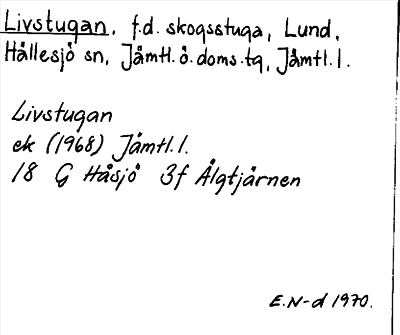 Livstugan, f.d. skogsstuga, Lund,
Hällesjö sn, Jämtl.ö.doms.tg, Jämtl.l.
Livstugan
ek (1968) Jämtl.l.
18 G Håsjö 3f Älgtjärnen
E.N-d 1970.